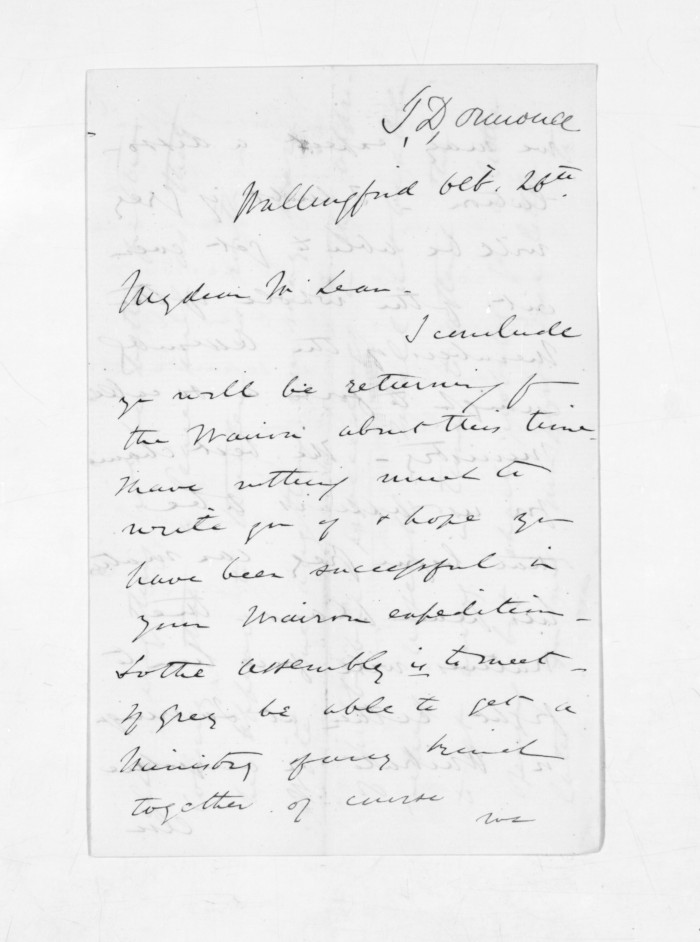 J, D, Ormond
Wallingford Oct. 26th
My dear McLean -
I conclude
you will be returning fr
the Wairoa about this time.
I have nothing much to
write you of & hope you
have been successful in
your Wairoa expedition -
So the Assembly is to meet -
If Grey be able to get a
Ministry of any kind
together of course
we